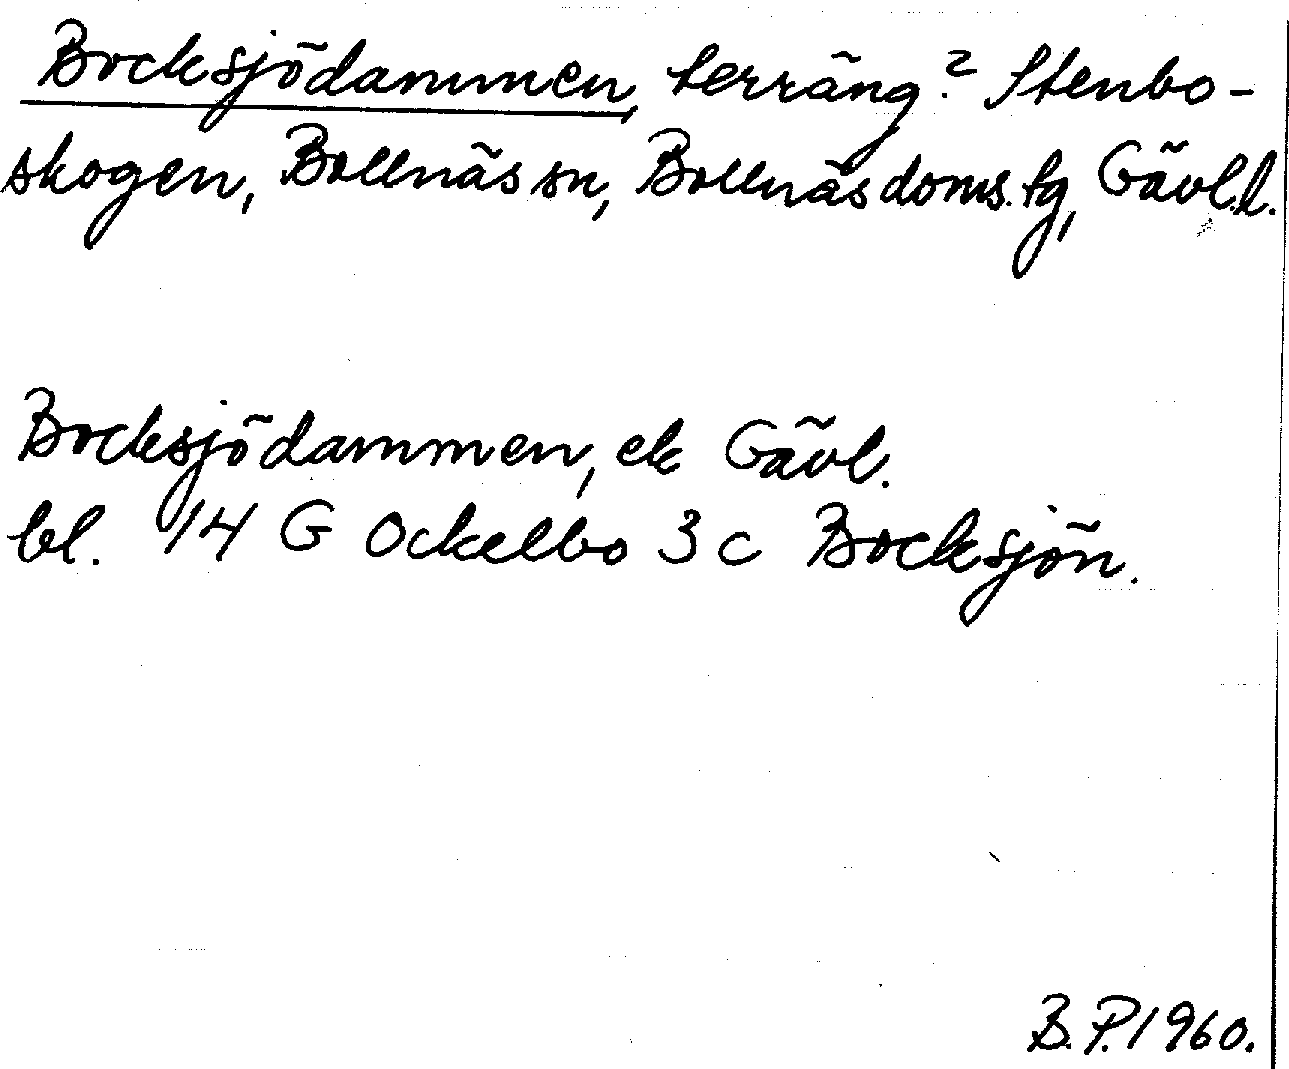 Bocksjödammen, terräng? Stenbo-
skogen, Bollnäs sn, Bollnäs doms. tg, Gävl.l.
Bocksjödammen, ek Gävl.
bl. 14 G Ockelbo 3 c Bocksjön.
B.P. 1960.